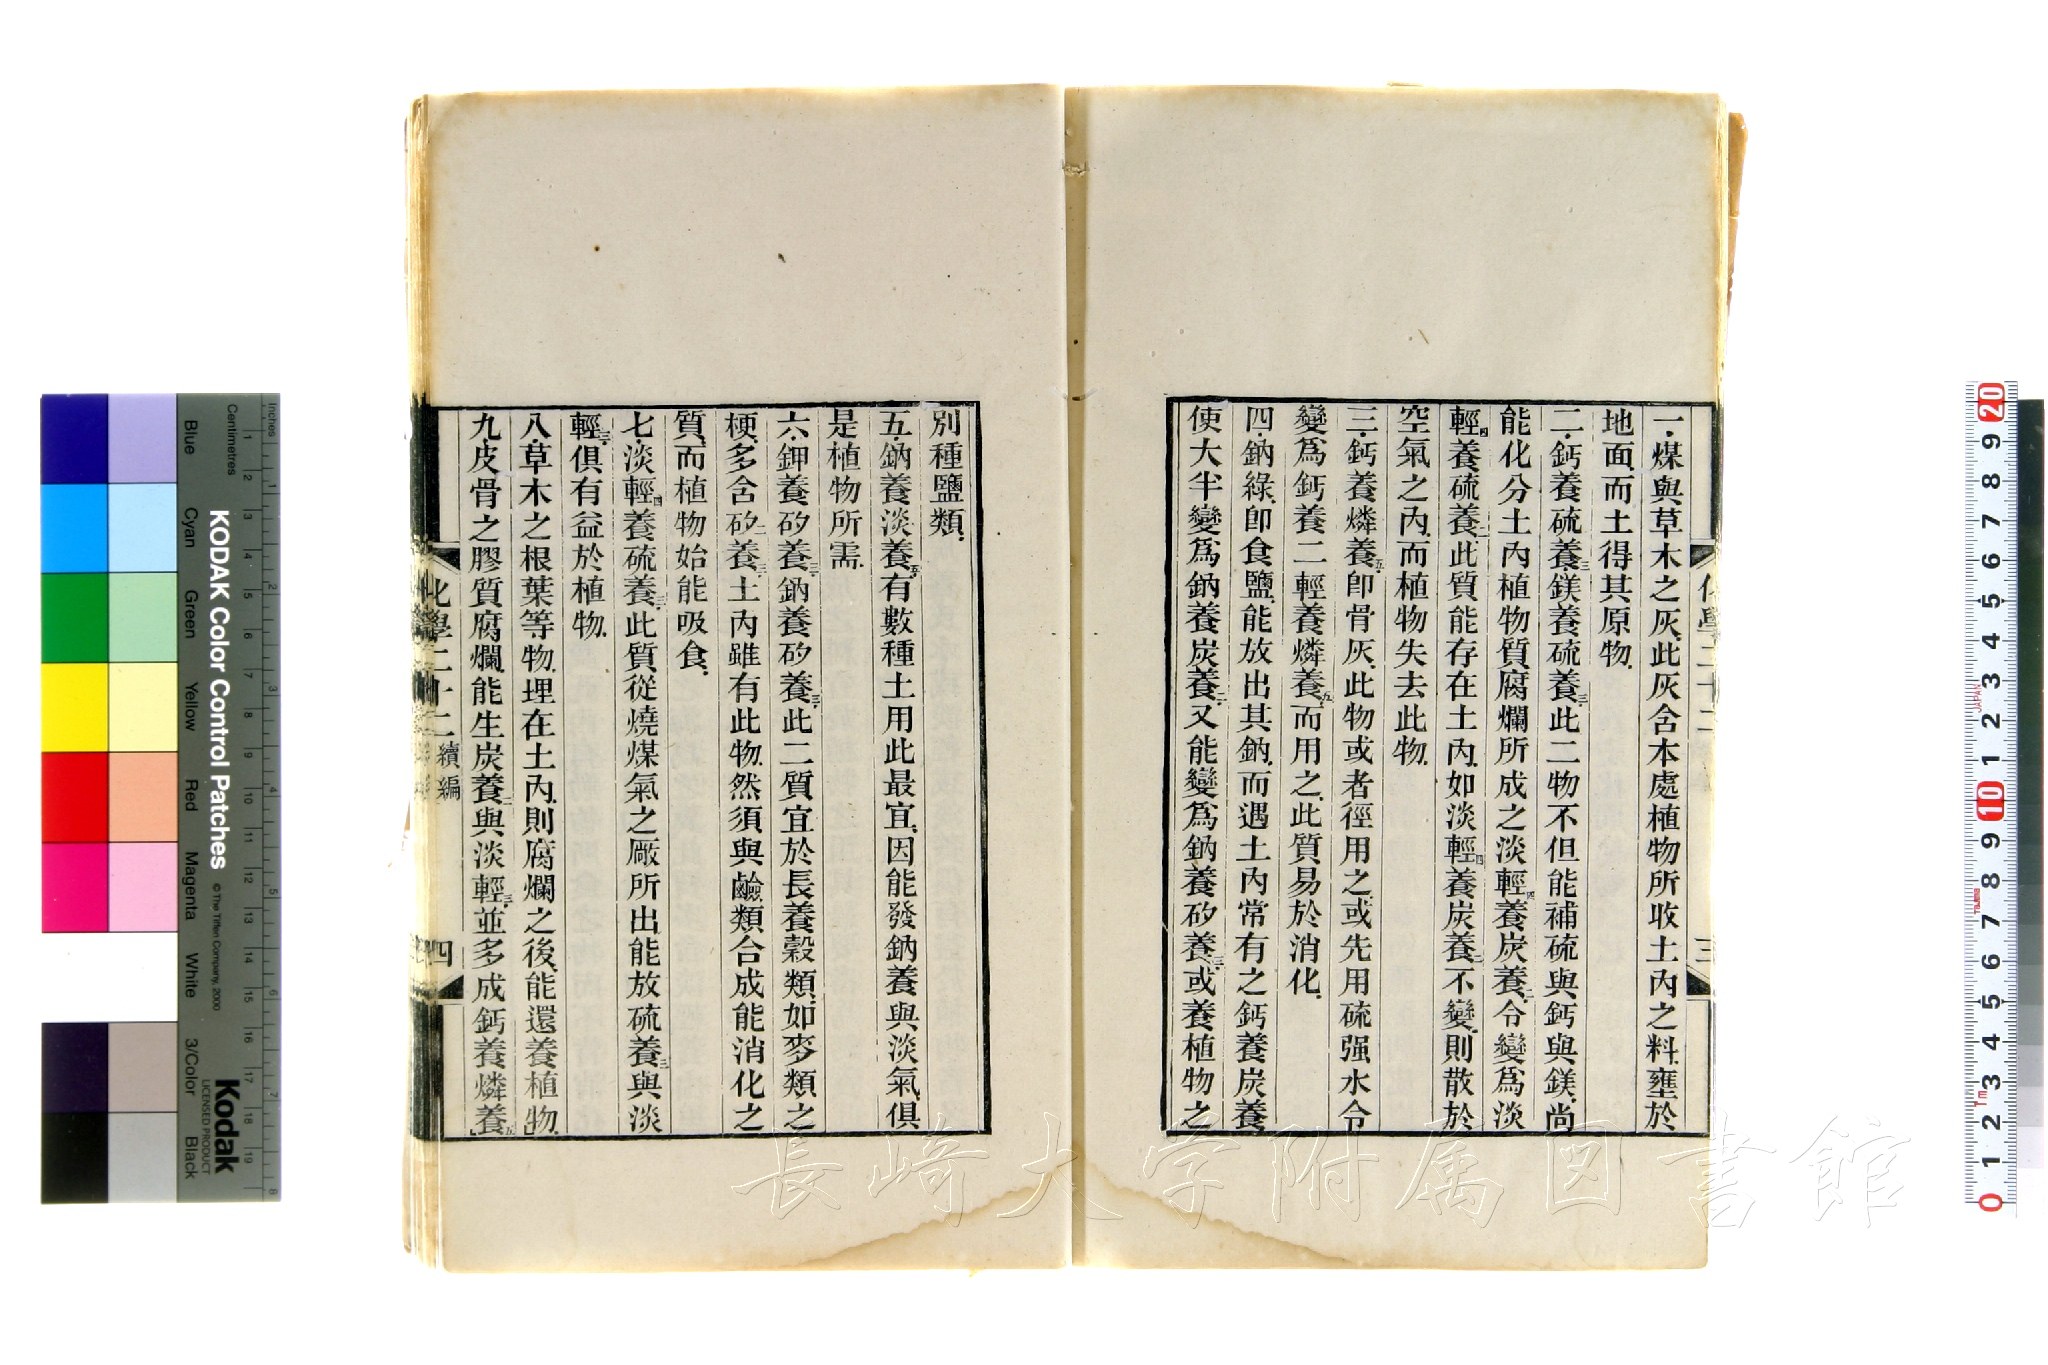 一煤與草木之灰此灰含本處植物所收土內之料壅於
地面而土得其原物
二鈣養硫養三鎂養硫養三此二物不但能補硫與鈣與鎂尚
能化分土內植物質腐爛所成之淡輕四養炭養二令變爲淡
輕四養硫養三此質能存在土內如淡輕四養炭養二不變則散於
空氣之內而植物失去此物
三鈣養燐養五卽骨灰此物或者徑用之或先用硫强水令
變爲鈣養二輕養燐養五而用之此質易於消化
四鈉綠卽食鹽能放出其鈉而遇土內常有之鈣養炭養二
使大半變爲鈉養炭養二又能變爲鈉養矽養三或養植物之
三
別種鹽類
五鈉養淡養五有數種土用此最宜因能發鈉養與淡氣俱
是植物所需
六鉀養矽養三鈉養矽養三此二質宜於長養穀類如麥類之
梗多含矽養三土內雖有此物然須與鹼類合成能消化之
質而植物始能吸食
七淡輕四養硫養三此質從燒煤氣之廠所出能放硫養三與淡
輕三俱有益於植物
八草木之根葉等物埋在土內則腐爛之後能還養植物
九皮骨之膠質腐爛能生炭養二與淡輕三並多成鈣養燐養五
化學二十二 續編
四
KODAK Color Control Patches
© The Tiffen Company, 2000
Kodak
LICENSED PRODUCT
Inches
Centimetres
Blue
Cyan
Green
Yellow
Red
Magenta
White
3/Color
Black
長崎大学附属図書館
JAPAN